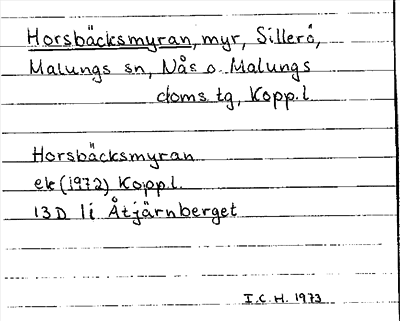 Horsbäcksmyran, myr, Sillerö,
Malungs sn, Nås o. Malungs
doms tg, Kopp.l
Horsbäcksmyran
ek (1972) Kopp.l.
13D 1i Åtjärnberget
I.C.H. 1973